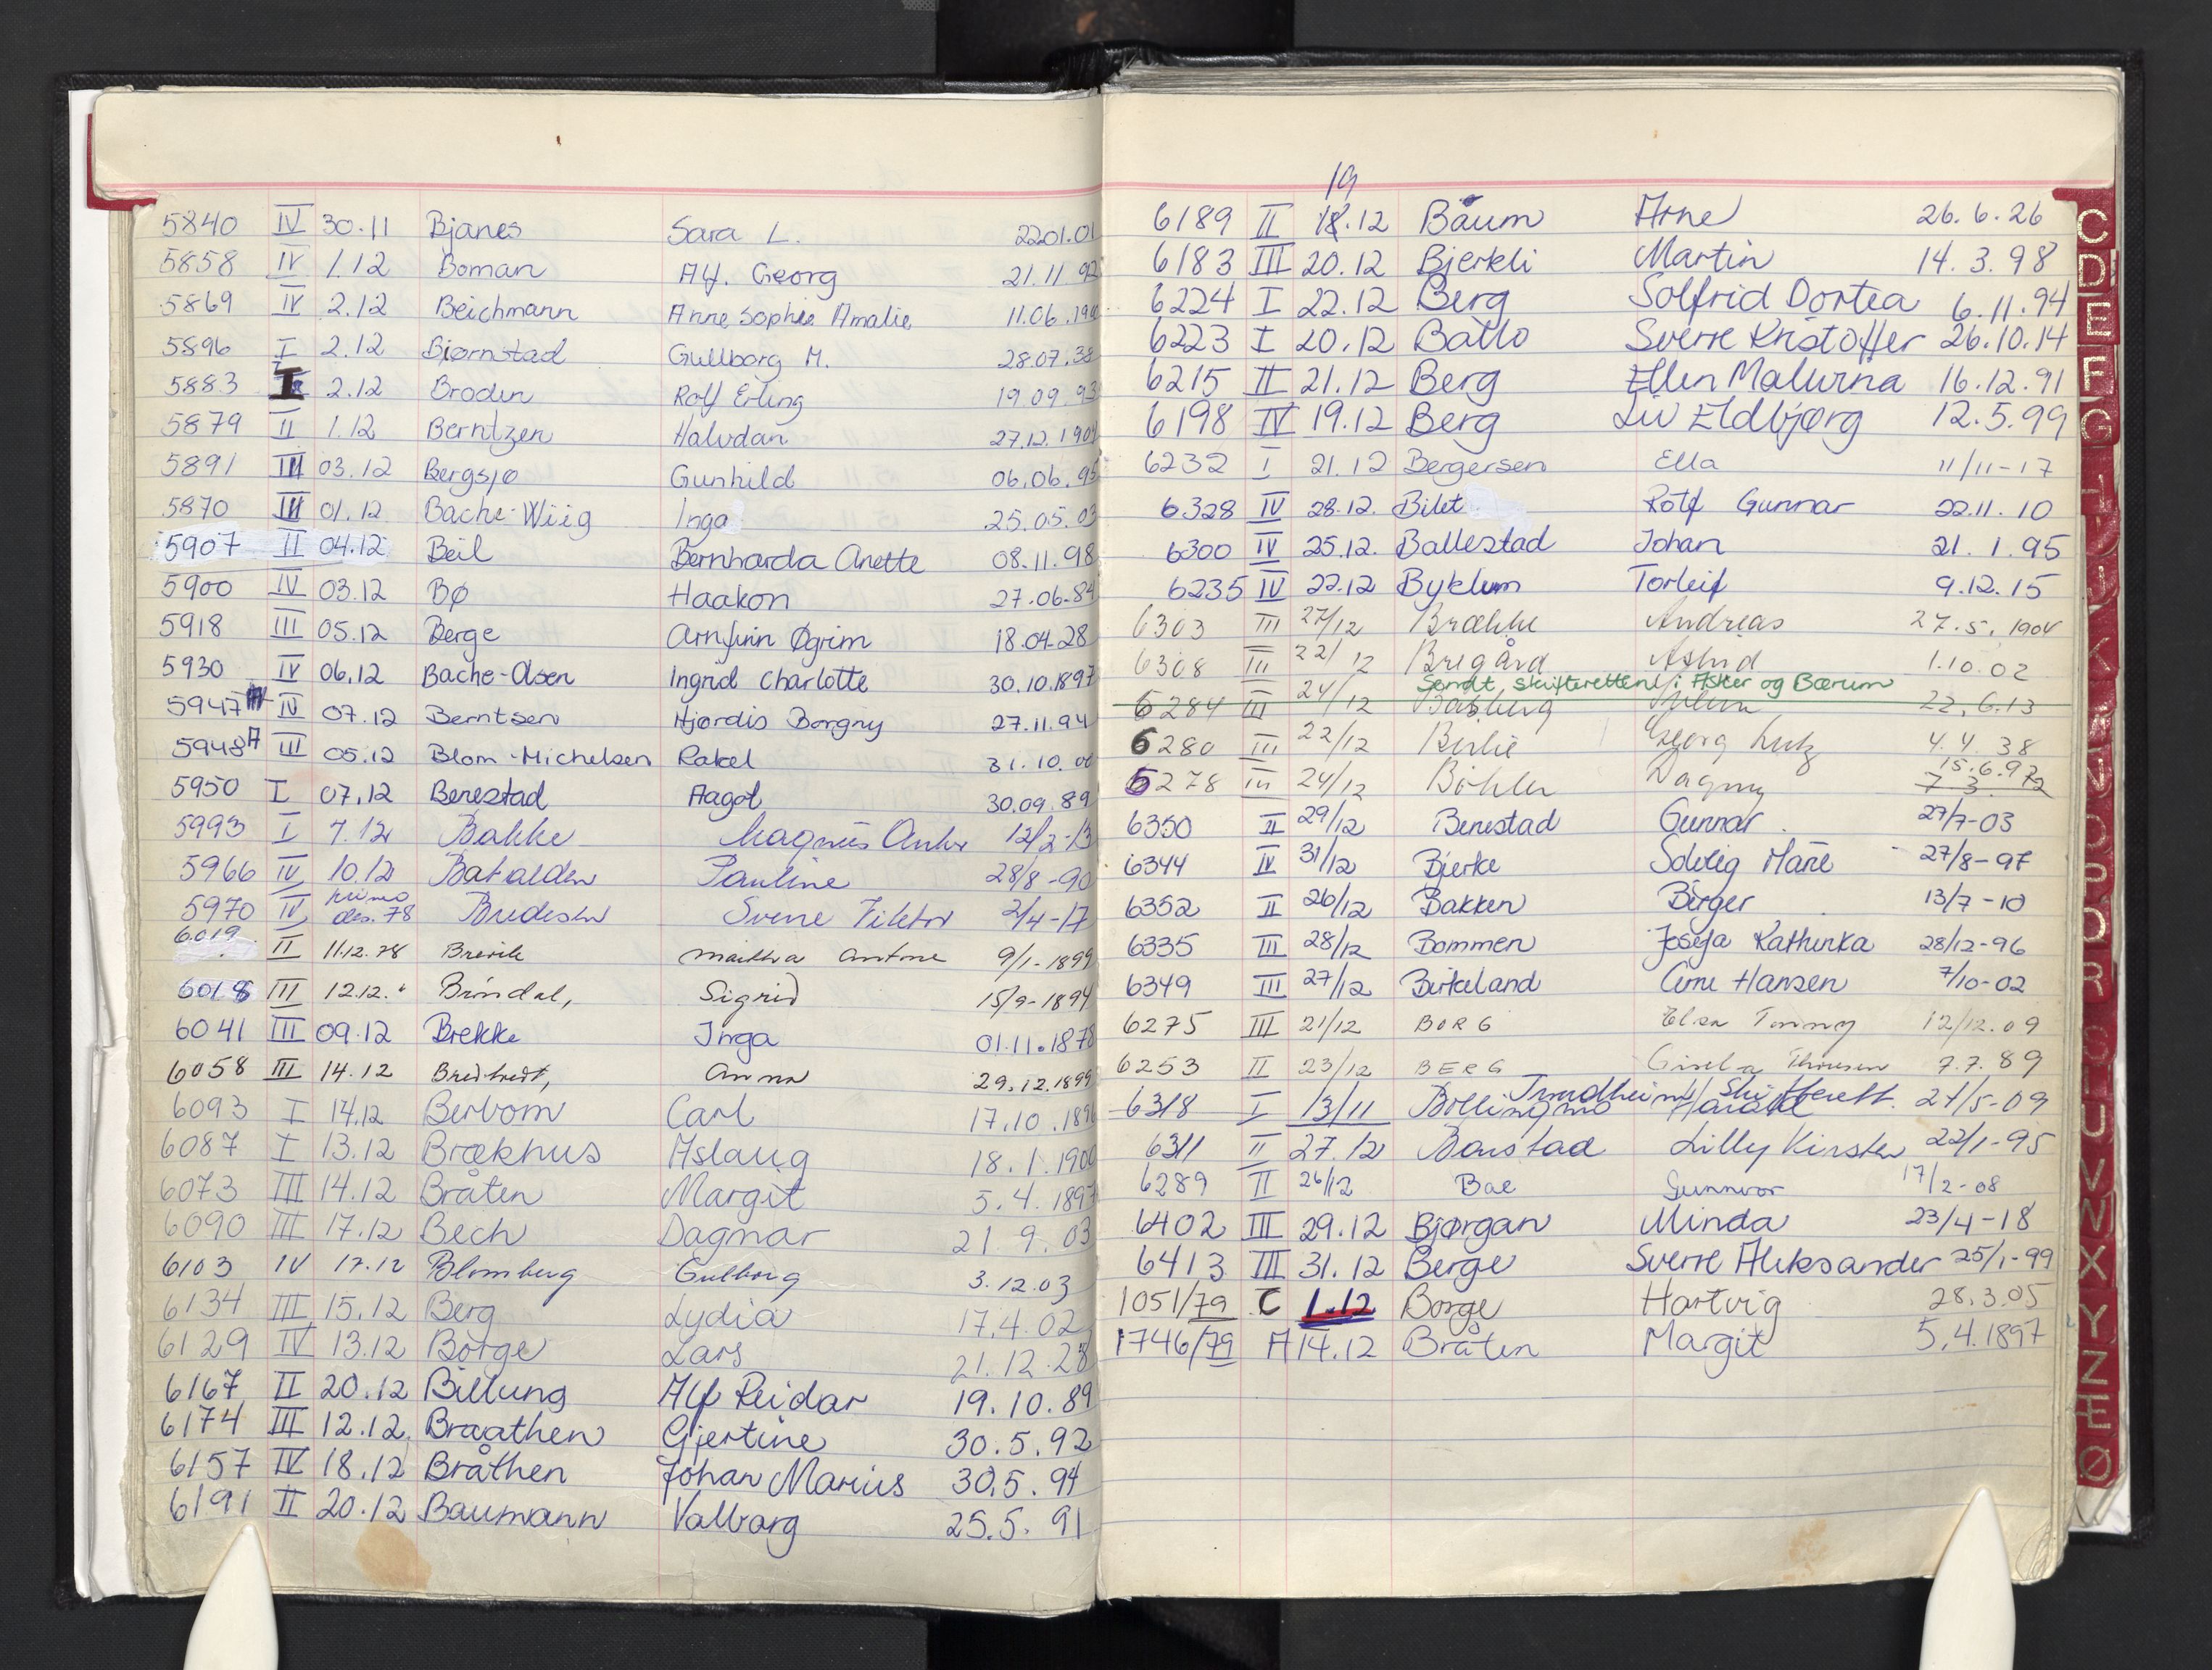 5840 IV 30.11 Bjanes Sara L. 22.01.01
5858 IV 1.12 Boman Alf. Georg 21.11.92
5869 IV 2.12 Beichmann Anne Sophie Amalie 11.06.19
5896 I 2.12 Bjørnstad Gullborg M. 28.07.38
5883 I 2.12 Broden Rolf Erling 19.09.93
5879 II 1.12 Berntzen Halvdan 27.12.1909
5891 III 03.12 Bergsjø Gunhild 06.06.95
5870 III 01.12 Bache-Wiig Inga 25.05.03
5907 II 04.12 Beil Bernharda Anette 08.11.98
5900 IV 03.12 Bø Haakon 27.06.84
5918 III 05.12 Berge Arnfinn Øgrim 18.04.28
5930 IV 06.12 Bache-Olsen Ingrid Charlotte 30.10.1897
5947 IV 07.12 Berntsen Hjørdis Borgny 27.11.94
5948A III 05.12 Blom-Michelsen Rakel 31.10.00
5950 I 07.12 Berestad Aagot 30.09.89
5993 I 7.12 Bakke Magnus 12/2-13
5966 IV 10.12 Batalden Pauline 28/8-90
5970 IV primo des. 78 Svene Viktor 2/4-17
6019 II 11.12.78 Brevik Antone 9/1-1899
6018 III 12.12." Brøndal, Sigrid 15/9-1894
6041 III 09.12 Brekke Inga 01.11.1878
6058 III 14.12 Anna 29.12.1899
6093 I 14.12 Berbom Carl 17.10.189
6087 I 13.12 Brækhus Aslaug 18.1.1900
6073 III 14.12 Bråten Margit 5.4.1897
6090 III 17.12 Bech Dagmar 21.9.03
6103 IV 17.12 Blomberg Gulborg 3.12.03
6134 III 15.12 Berg Lydia 17.4.02
6129 IV 13.12 Børge Lars 21.12.28
6167 II 20.12 Billung Alf Reidar 19.10.89
6174 III 12.12 Braathen Gjertine 30.5.92
6157 IV 18.12 Bråthen Johan Marius 30.5.94
6191 II 20.12 Baumann Valborg 25.5.91
19
6189 II 18.12 Baum Arne 26.6.26
6183 III 20.12 Bjerkli Martin 14.3.98
6224 I 22.12 Berg Solfrid Dortea 6.11.94
6223 I 20.12 Ballo Sverre Kristoffer 26.10.14
6215 II 21.12 Berg Ellen Malvina 16.12.91
6198 IV 19.12 Berg Liv Eldbjørg 12.5.99
6232 I 21.12 Bergersen Ella 11/11-17
6328 IV 28.12. Bilet Rolf Gunnar 22.11.10
6300 IV 25.12. Ballestad Johan 21.1.95
6235 IV 22.12 Byklum Torleif 9.12.15
6303 III 27/12 Brække Andreas 27.5.1904
6308 III 22/12 Bregård Astrid 1.10.02
Sendt skifteretten i Asker og Bærum
6284 III 24/12 22.6.13
6280 III 22/12 Berlie Georg Lutz 4.4.38
15.6.92
6278 III 24/12 Böhler Dagny 7 3 72
6350 II 29/12 Benestad Gunnar 27/7-03
6344 IV 31/12 Bjerke Solveig Marie 27/8-97
6352 II 26/12 Bakken Birger 13/7-10
6335 III 28/12 Bommen Josefa Kathinka 28/12-96
6349 III 27/12 Birkeland Arne Hansen 7/10-02
6275 III 21/12 BORG Elsa 12/12.09
6253 II 23/12 BERG Gisela Thoresen 7.7.89
Trondheim Skifterett.
6318 I 13/11 Bollingmo Harald 27/5-09
6311 II 27.12 Bonstad Lilly Kirsten 22/1-95
6289 II 26/12 Boe Gunnvor 17/2-08
6402 III 29.12 Bjørgan Minda 23/4-18
6413 III 31.12 Berge Sverre Aleksander 25/1-99
1051/79 C 1.12 Borge Hartvig 28.3.05
1746/79 A 14.12 Bråten Margit 5.4.1897
C
D
E
F
G
I
J
K
N
O
P
Q
R
S
T
U
V
W
X
Y
Z
Æ
Ø